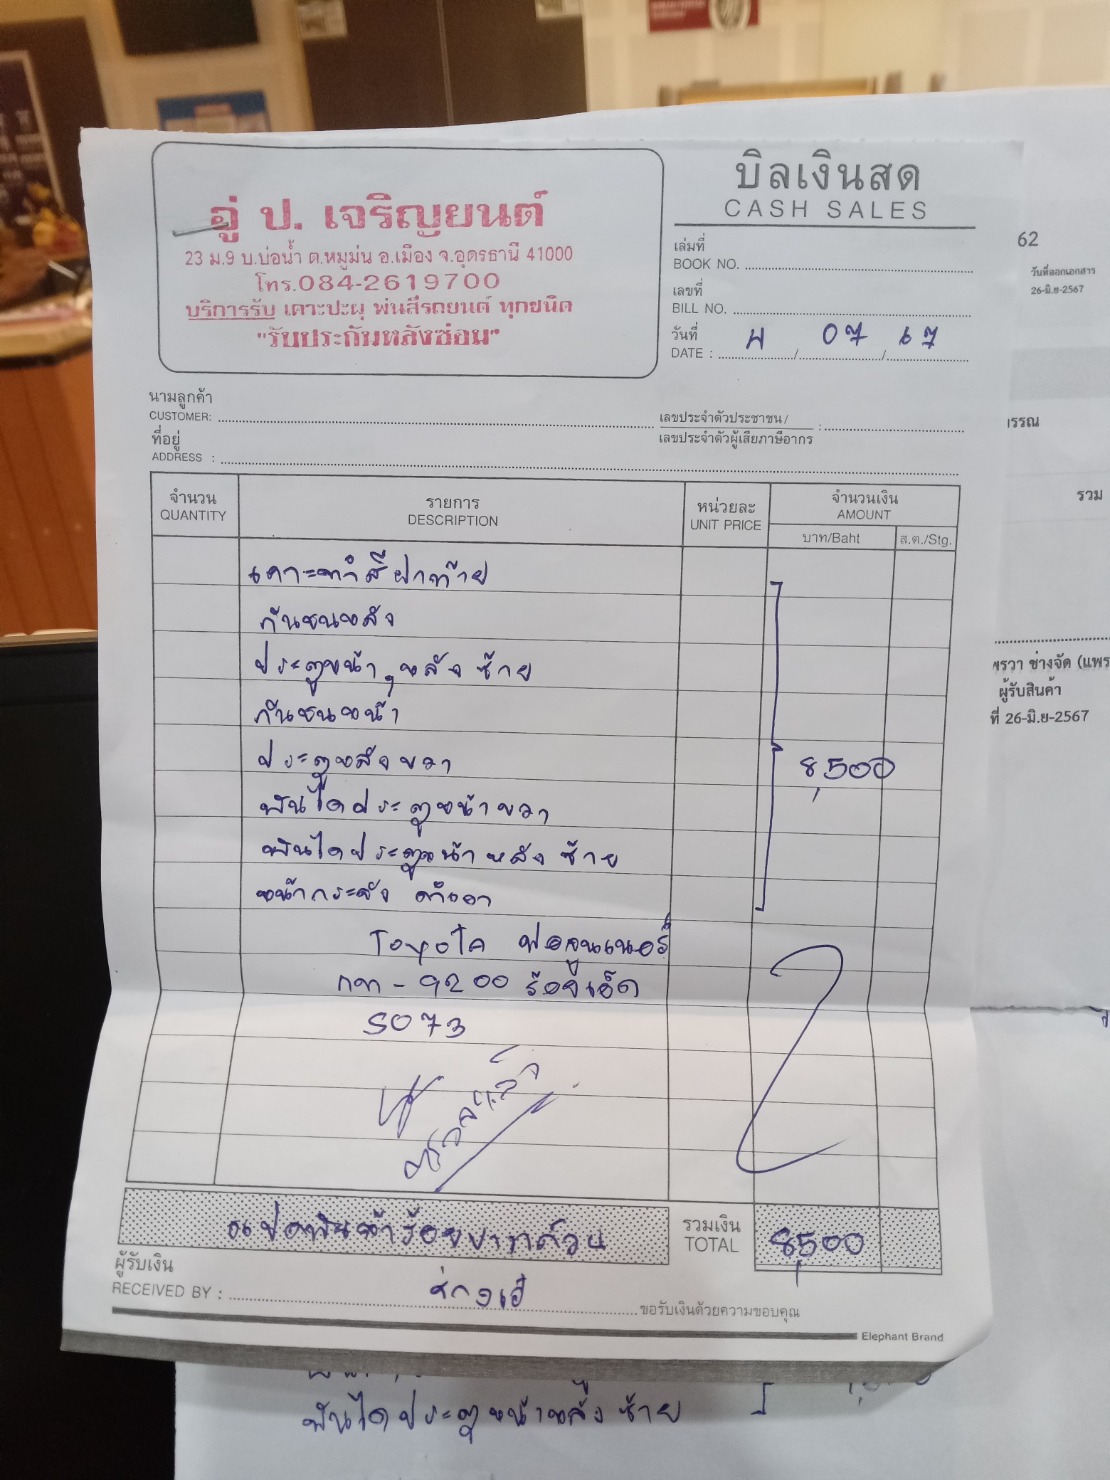 อู่ ป. เจริญยนต์
23 ม.9 บ.บ่อน้ำ ต.หมูม่น อ.เมือง จ.อุดรธานี 41000
โทร.084-2619700
บริการรับ เคาะปะผุ พ่นสีรถยนต์ ทุกชนิด
"รับประกันหลังซ่อม"
บิลเงินสด
CASH SALES
เล่มที่
BOOK NO.
เลขที่
BILL NO.
วันที่
DATE : / 07 / 67
นามลูกค้า
CUSTOMER:
เลขประจำตัวประชาชน/ :
เลขประจำตัวผู้เสียภาษีอากร
ที่อยู่
ADDRESS :
จำนวน
QUANTITY
รายการ
DESCRIPTION
หน่วยละ
UNIT PRICE
จำนวนเงิน
AMOUNT
บาท/Baht
ส.ต./Stg.
เคาะทำสีฝาท้าย
กันชนหลัง
ประตูหน้า,หลัง ซ้าย
กันชนหน้า
ประตูหลังขวา
8,500
บันไดประตูหน้าขวา
บันไดประตูหน้าหลัง ซ้าย
หน้ากระจัง
Toyota ฟอจูนเนอร์
กท - 9200 ร้อยเอ็ด
5073
แปดพันห้าร้อยบาทถ้วน
รวมเงิน
TOTAL
8,500
ผู้รับเงิน
RECEIVED BY :
ขอรับเงินด้วยความขอบคุณ
Elephant Brand
62
วันที่ออกเอกสาร
26-มิ.ย-2567
รวม
พรวา ช่างจัด (แพร
ผู้รับสินค้า
ที่ 26-มิ.ย-2567
บันไดประตูหน้าหลัง ซ้าย